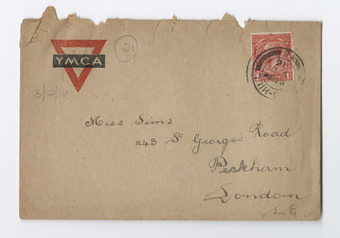 21
YMCA
3/12/16
Miss Sims
243 St Georges Road
Peckham
London
S.E